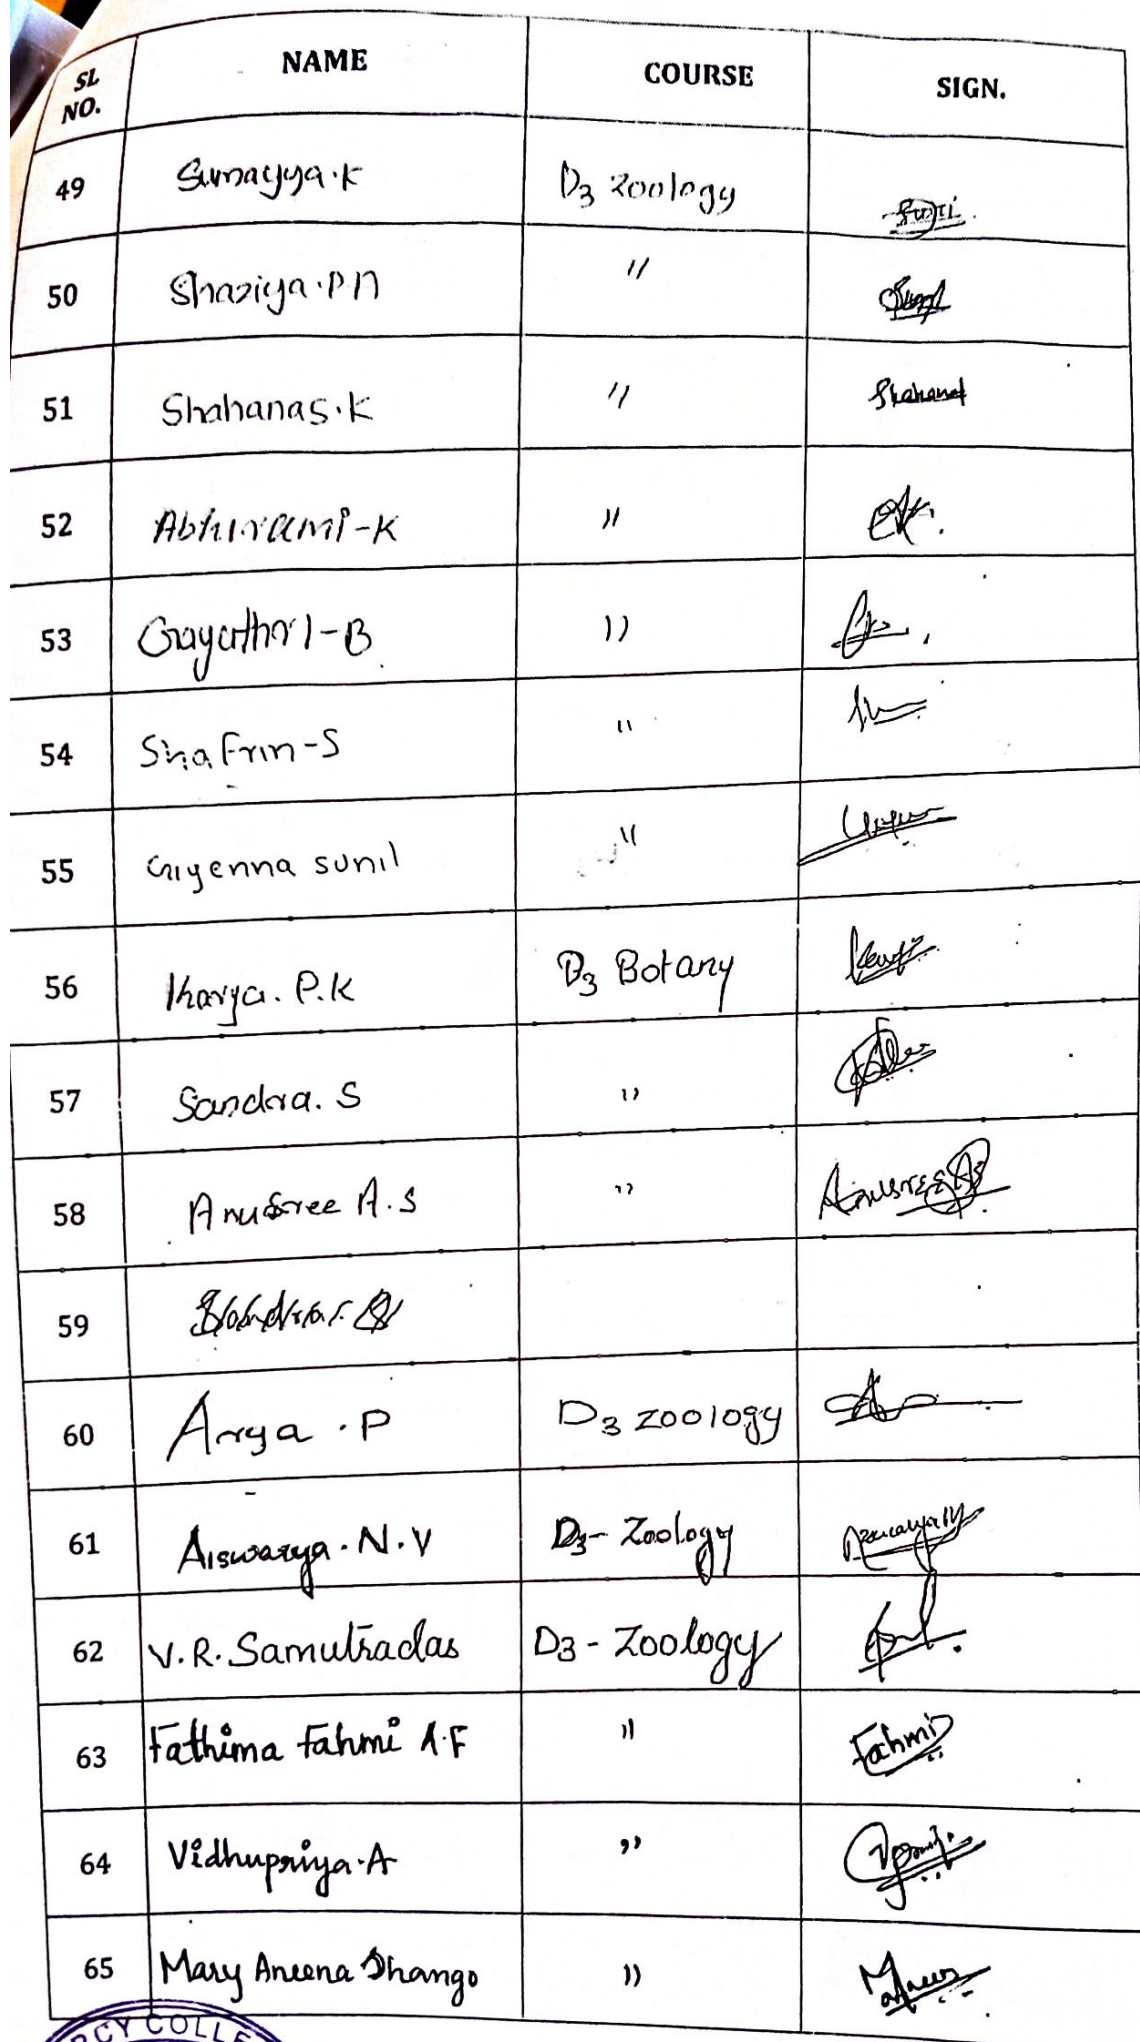 SL NO. NAME COURSE SIGN.
49 Sumayya.K D3 Zoology
50 Shaziya.P.N "
51 Shahanas.K " Shahanas
52 Abhirami-K "
53 Gayathri-B "
54 Shafrin-S "
55 Giyenna sunil "
56 Kavya. P.K D3 Botany
57 Sandra. S "
58 Anusree A.S " Anusree AS
59
60 Arya .P D3 zoology
61 Aiswarya. N.V D3- Zoology
62 V.R. Samutradas D3 - Zoology
63 Fathima Fahmi A.F " Fahmi
64 Vidhupriya.A "
65 Mary Aneena Shango "
RCY COLLE